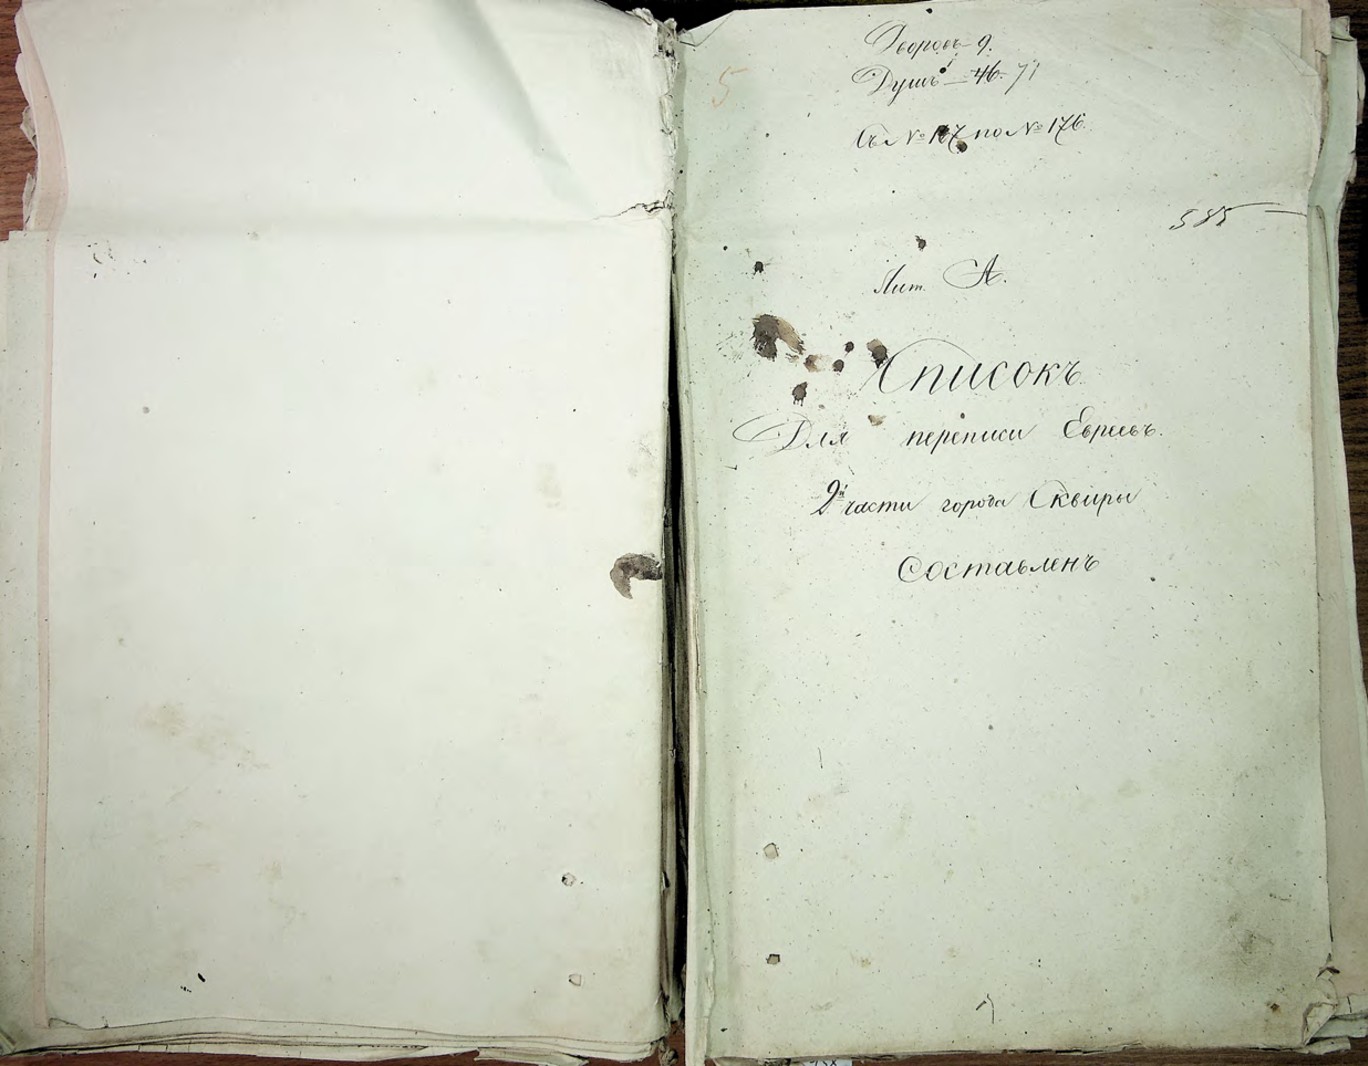 5
Дворовъ 9.
Душъ — 46. 71
Съ № 167 по № 176.
585
Лит. А.
Списокъ
Для переписи Евреевъ.
2й части города Сквиры
Составленъ